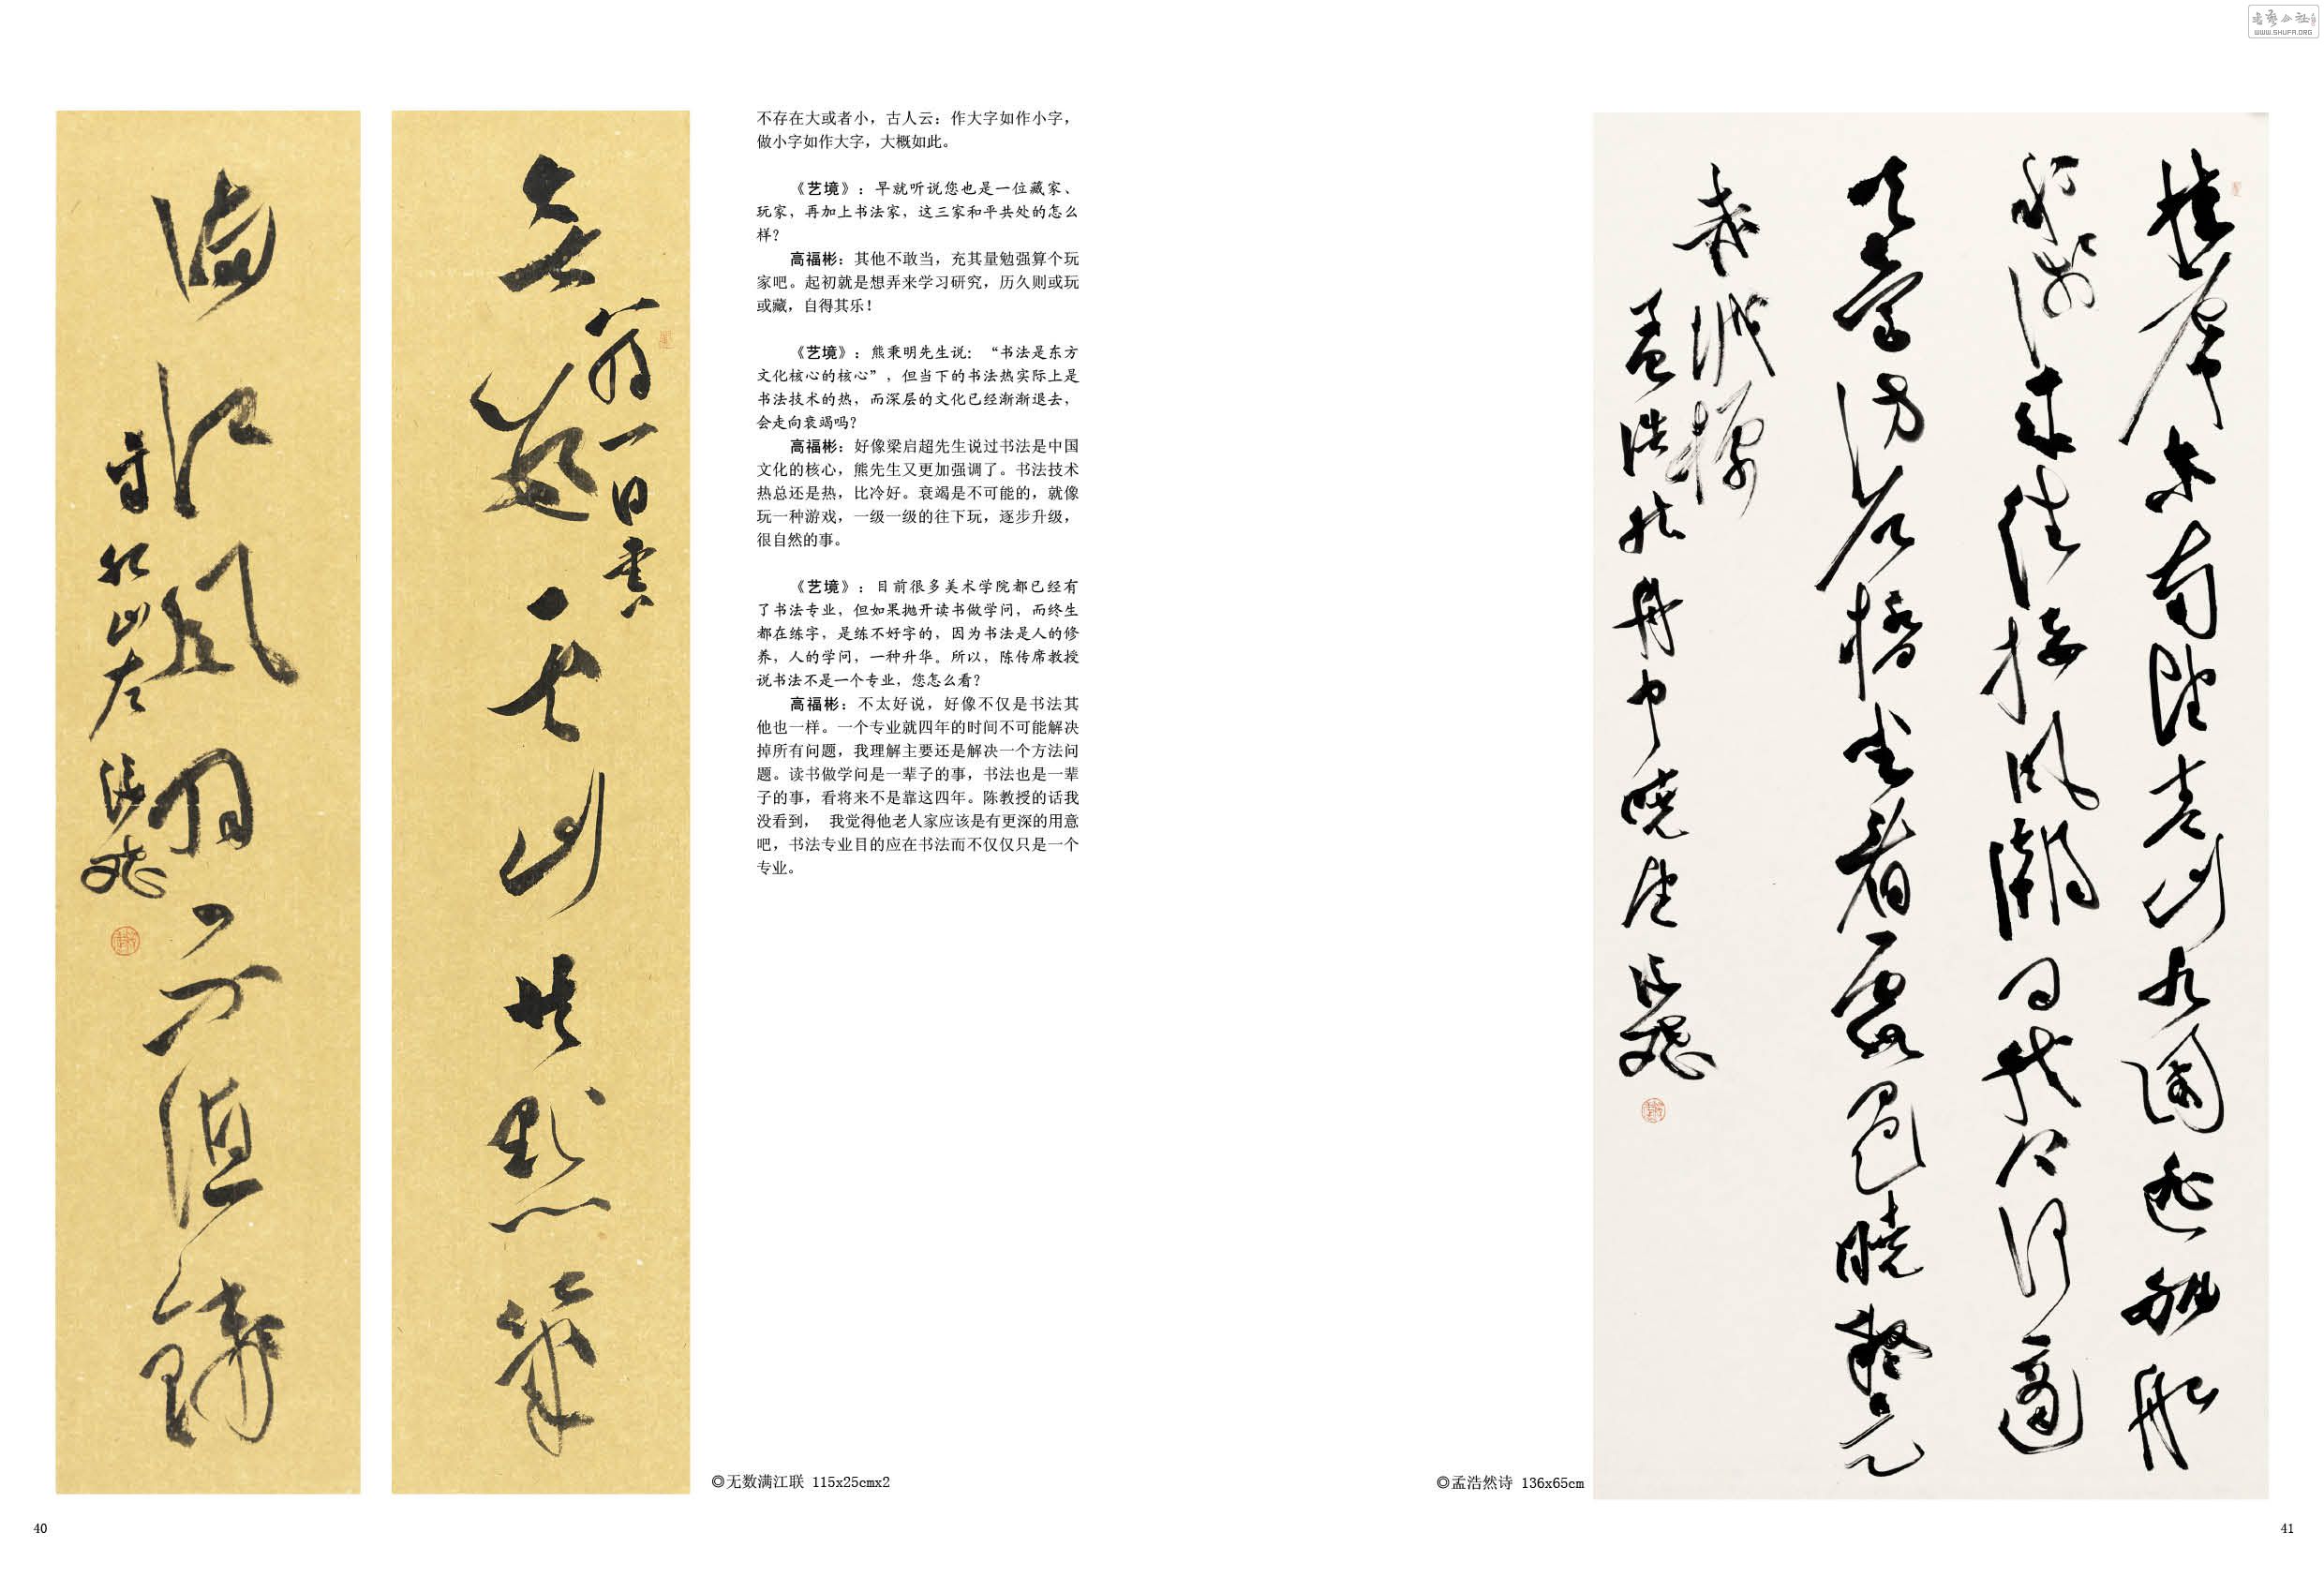 無數雲山共點筆
滿江風月不值錢
不存在大或者小，古人云：作大字如作小字，
做小字如作大字，大概如此。
《艺境》：早就听说您也是一位藏家、
玩家，再加上书法家，这三家和平共处的怎么
样？
高福彬：其他不敢当，充其量勉强算个玩
家吧。起初就是想弄来学习研究，历久则或玩
或藏，自得其乐！
《艺境》：熊秉明先生说：“书法是东方
文化核心的核心”，但当下的书法热实际上是
书法技术的热，而深层的文化已经渐渐退去，
会走向衰竭吗？
高福彬：好像梁启超先生说过书法是中国
文化的核心，熊先生又更加强调了。书法技术
热总还是热，比冷好。衰竭是不可能的，就像
玩一种游戏，一级一级的往下玩，逐步升级，
很自然的事。
《艺境》：目前很多美术学院都已经有
了书法专业，但如果抛开读书做学问，而终生
都在练字，是练不好字的，因为书法是人的修
养，人的学问，一种升华。所以，陈传席教授
说书法不是一个专业，您怎么看？
高福彬：不太好说，好像不仅是书法其
他也一样。一个专业就四年的时间不可能解决
掉所有问题，我理解主要还是解决一个方法问
题。读书做学问是一辈子的事，书法也是一辈
子的事，看将来不是靠这四年。陈教授的话我
没看到， 我觉得他老人家应该是有更深的用意
吧，书法专业目的应在书法而不仅仅只是一个
专业。
◎无数满江联 115x25cmx2
40
挂席東南望青山水國遥舳艫
利涉來往接風潮問我今何適
天臺訪石橋坐看霞色曉疑是
赤城標
孟浩然舟中曉望 福彬
◎孟浩然诗 136x65cm
41
WWW.SHUFA.ORG